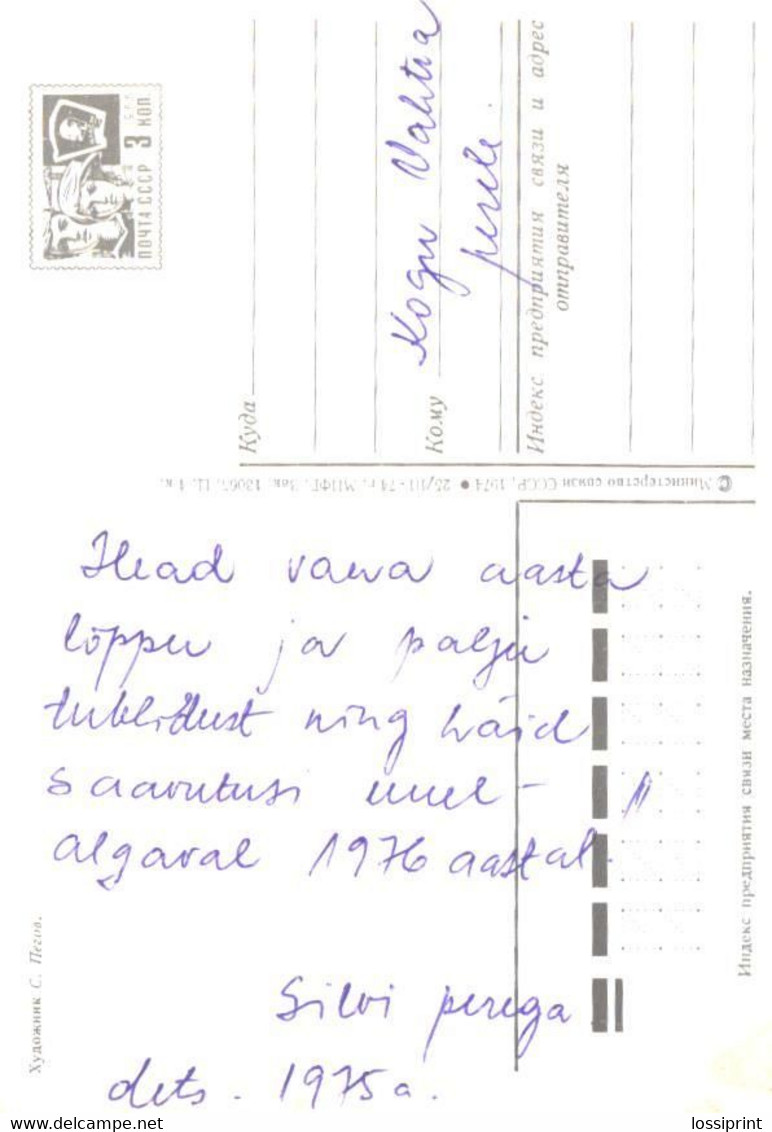 ПОЧТА СССР 3 КОП
Куда
Кому Kogu Vahtra
perele.
Индекс предприятия связи и адрес
отправителя
© Министерство связи СССР, 1974 • 25/III-74 г. МПФГ. Зак. 12067. Ц. 4 к.
Head vana aasta
lõppu ja palju
tublidust ning häid
saavutusi uuel-
algaval 1976 aastal.
Silvi perega
dets. 1975 a.
Художник С. Пегов.
Индекс предприятия связи места назначения.
www.delcampe.net
lossiprint